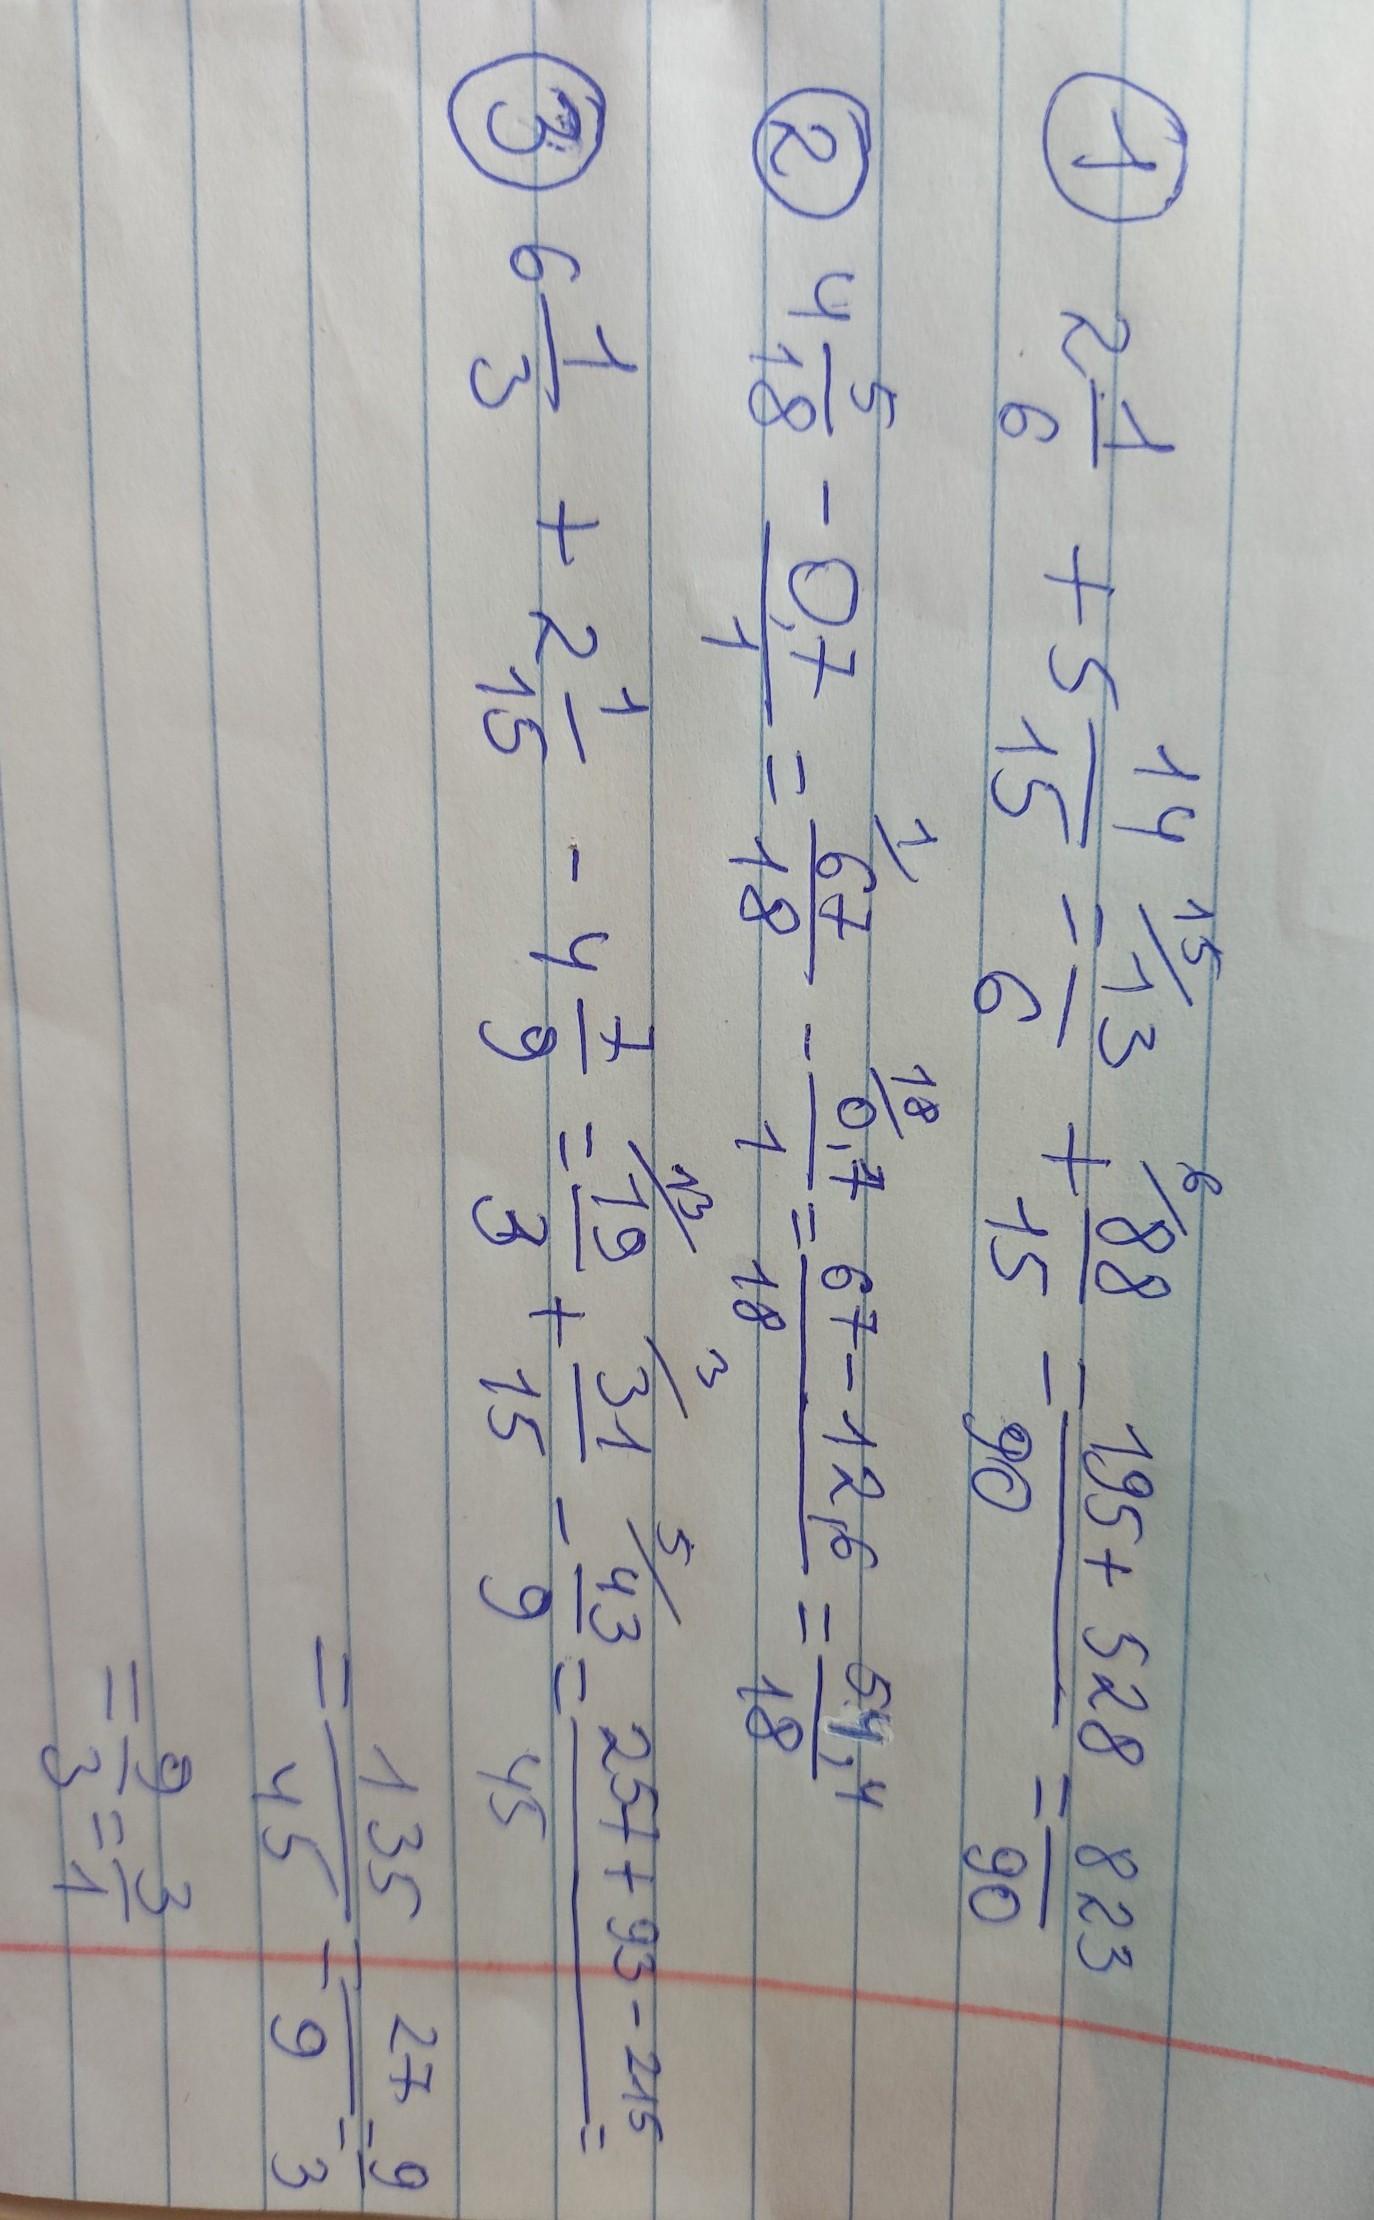 ① 2 1/6 + 5 14/15 = 13/6 15/ + 88/15 6/ = (195 + 528)/90 = 823/90
② 4 5/18 - 0,7/1 = 67/18 1/ - 0,7/1 18/ = (67 - 12,6)/18 = 54,4/18
③ 6 1/3 + 2 1/15 - 4 7/9 = 19/3 + 31/15 3/ - 43/9 5/ = (257 + 93 - 215)/45 =
= 135/45 = 27/9 = 9/3
= 9/3 = 3/1